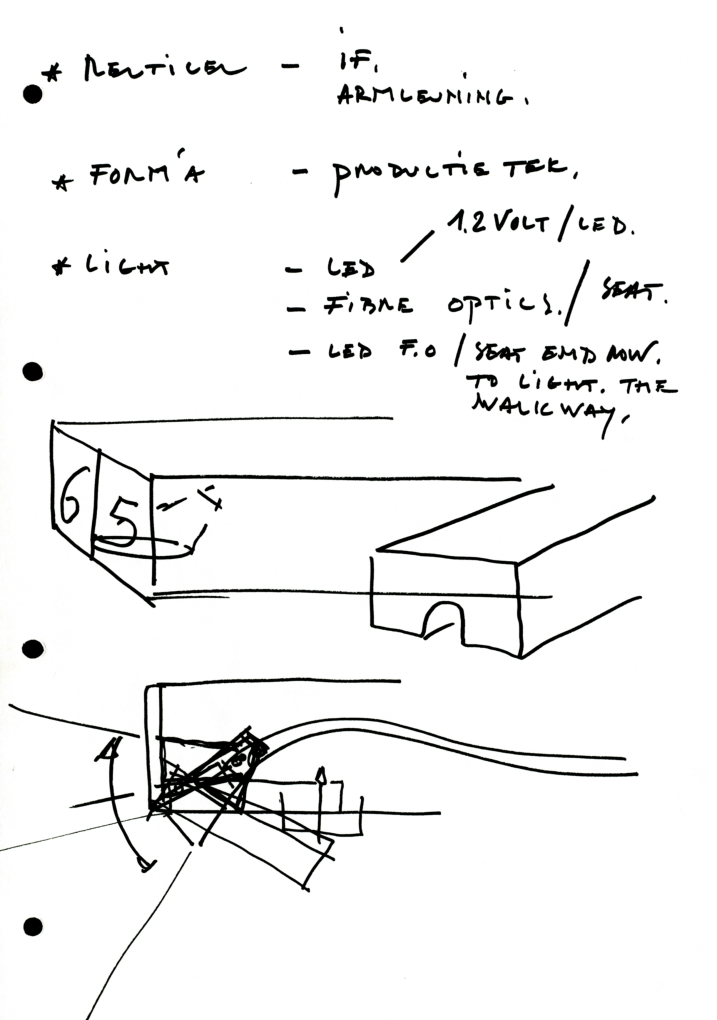 * – IF.
ARMLEUNING.
* FORM'A – PRODUCTIE TEK.
1.2 VOLT / LED.
* LIGHT – LED /
– FIBRE OPTICS. / SEAT.
– LED F.O / SEAT END ROW.
TO LIGHT. THE
WALKWAY.
6 5